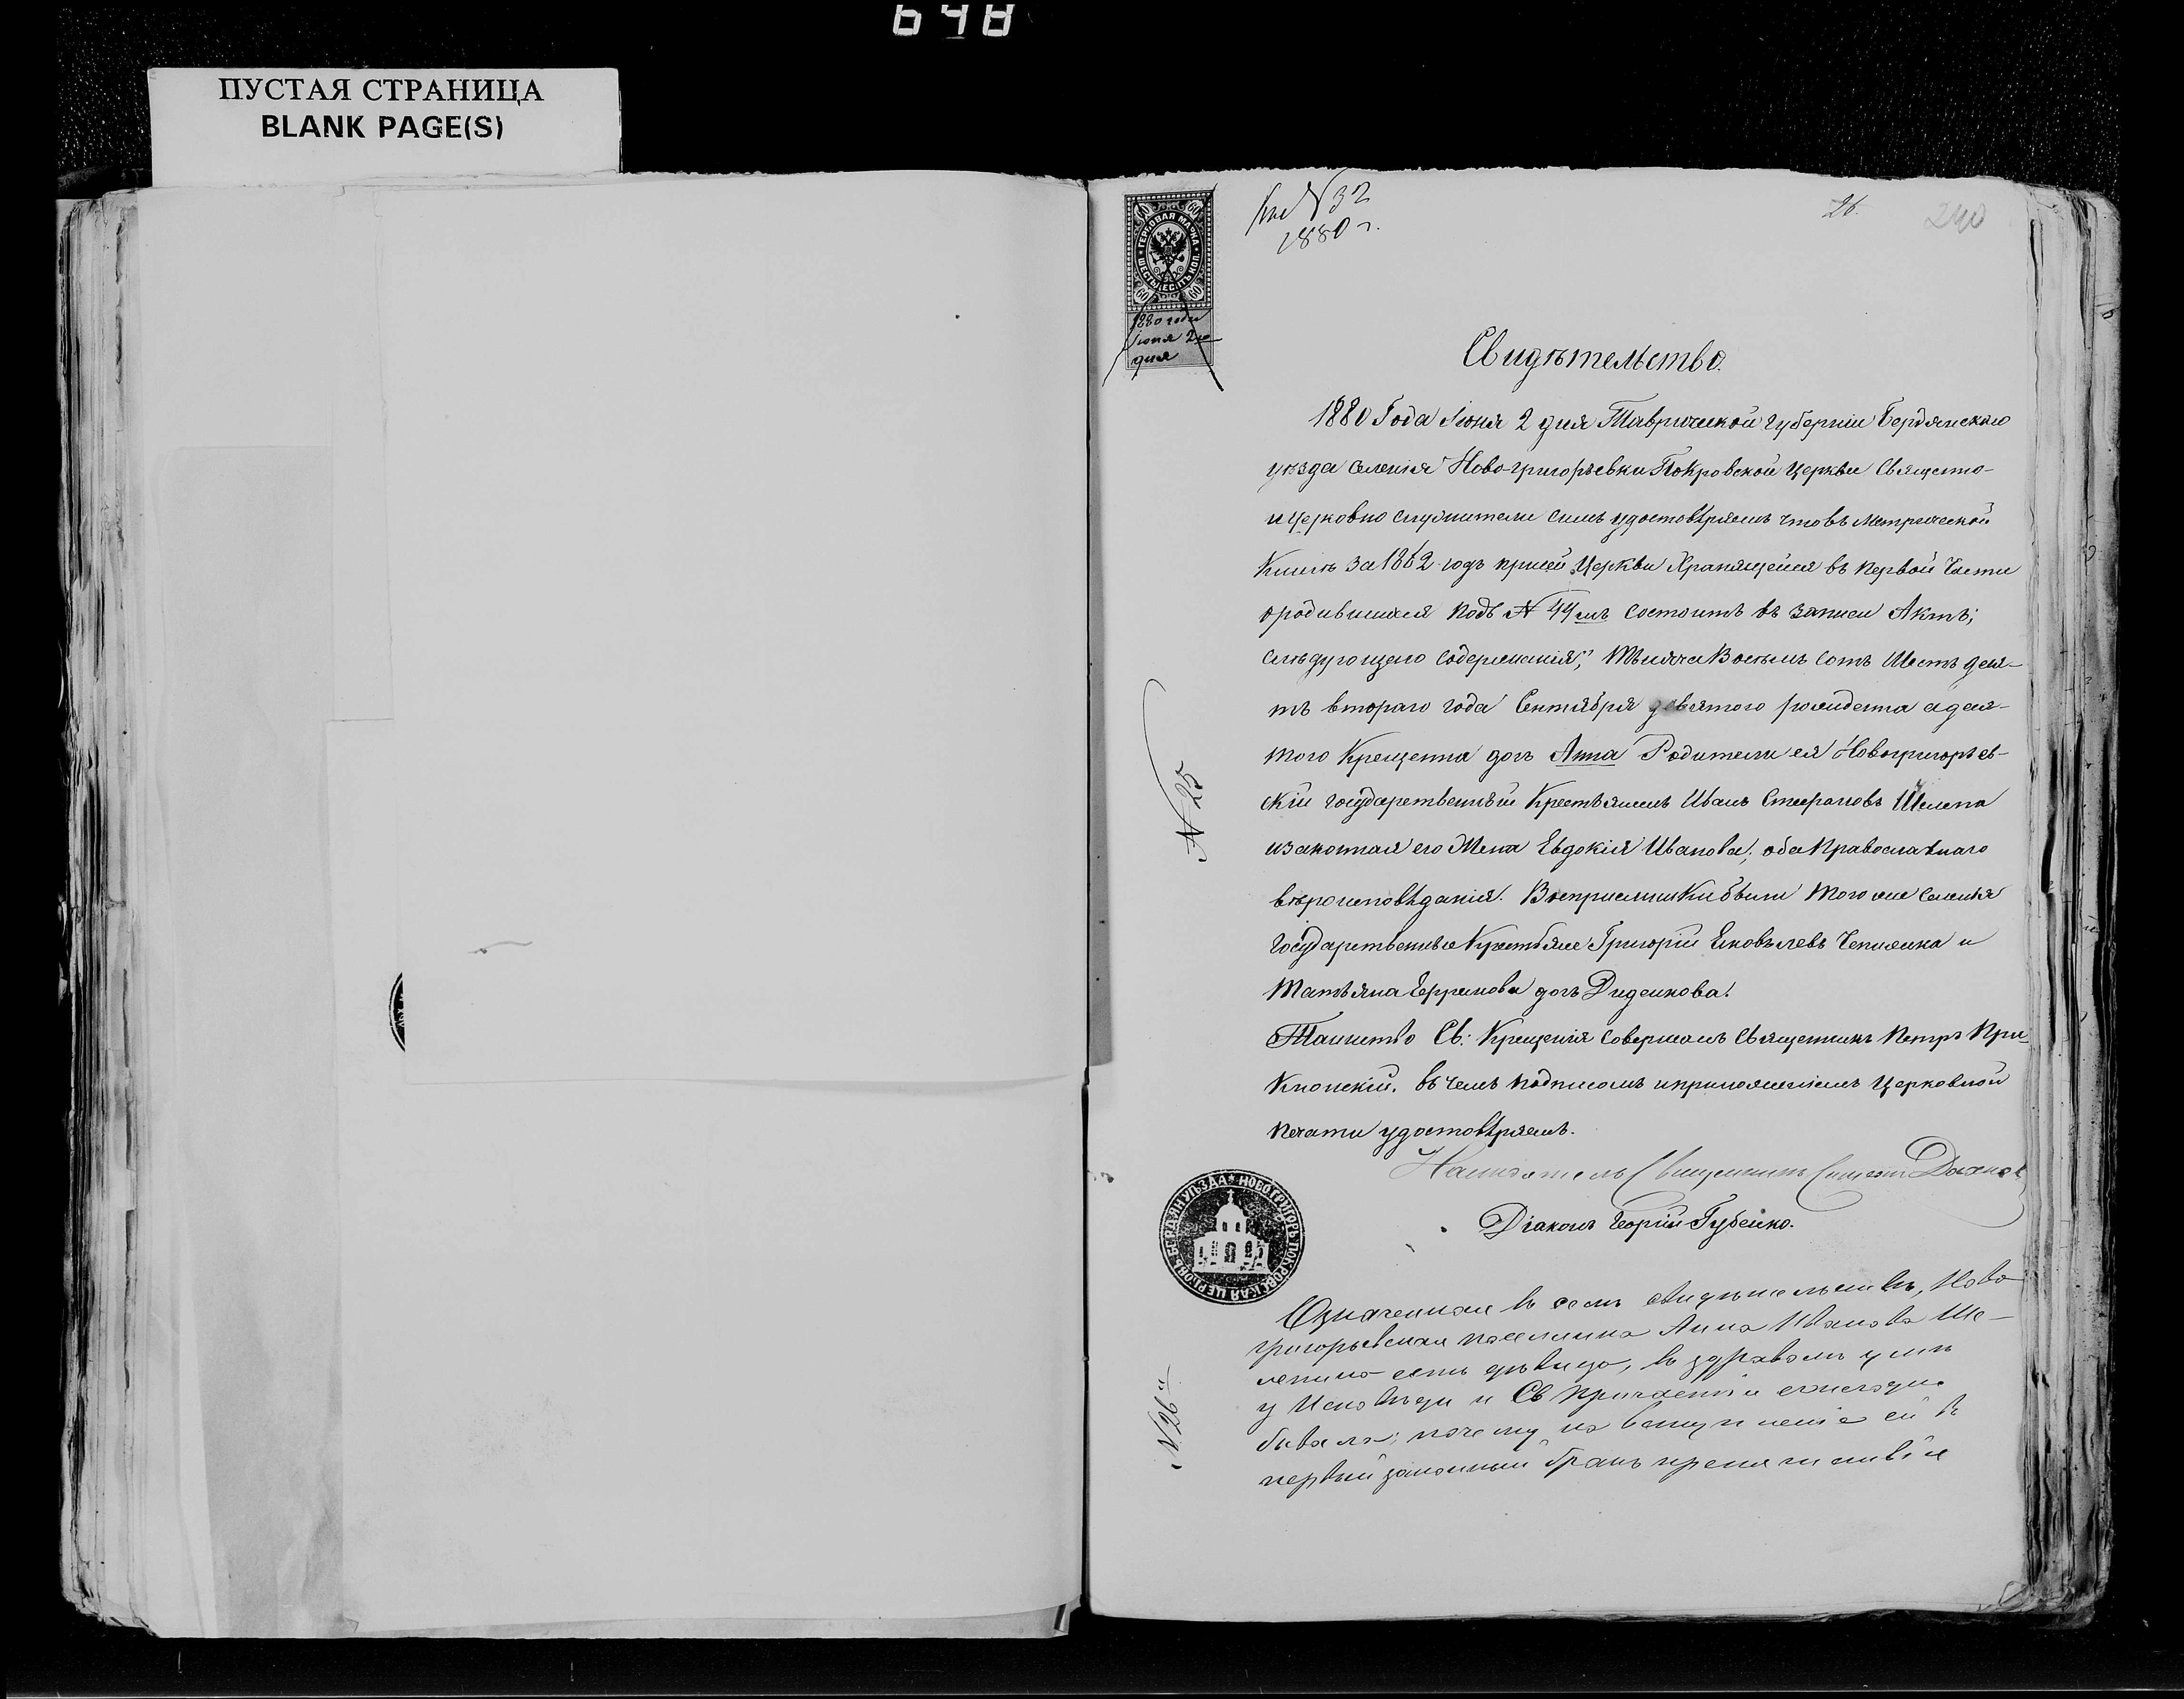 648
ПУСТАЯ СТРАНИЦА
BLANK PAGE(S)
№ 32
1880 г.
26.
240
ГЕРБОВАЯ МАРКА
ШЕСТЬДЕСЯТЪ КОП.
60 60 60 60
1880 года
Іюня 2го
дня
Свидѣтельство.
1880 Года Іюня 2 дня Таврической губерніи Бердянскаго
уѣзда селенія Ново-григорьевки Покровской Церкви Священо-
и Церковно служители симъ удостовѣряемъ что въ Метрической
Книгѣ за 1862 годъ при сей Церкви Хранящейся въ первой Части
о родившихся подъ № 44мъ состоитъ въ записи Актъ;
слѣдующаго содержанія; „Тысяча Восемь сотъ Шесть деся-
тъ втораго года Сентября девятого рождена а деся-
того Крещенна дочь Анна Родители ея Новогригорьев-
скій государственный Крестьянинъ Иванъ Стефановъ Шелепа
и законная его Жена Евдокія Иванова; оба Православнаго
вѣроисповѣданія. Воспріемники были того же селенія
Государственные Крестьяне Григорій Яковлевъ Чепижка и
Татьяна Ефримова дочь Диденкова.
Таинство Св: Крещенія совершалъ Священникъ Петръ При-
въ чемъ подписомъ и приложеніемъ Церковной
печати удостовѣряемъ.
Настоятель Священникъ
Діаконъ Георгій Губенко.
БЕРДЯН УѢЗДА * НОВОГРИГОРЬ. ПОКРОВСКАЯ ЦЕРКОВЬ
№ 25
Означенная въ семъ свидѣтельствѣ, Ново
григорьевская поселянка Анна Иванова Ше-
лепина есть дѣвица, въ здравомъ умѣ
у Исповѣди и Св Причастія ежегодно
бывала; почему на вступленіе ей въ
первый законный бракъ препятствія
№ 26